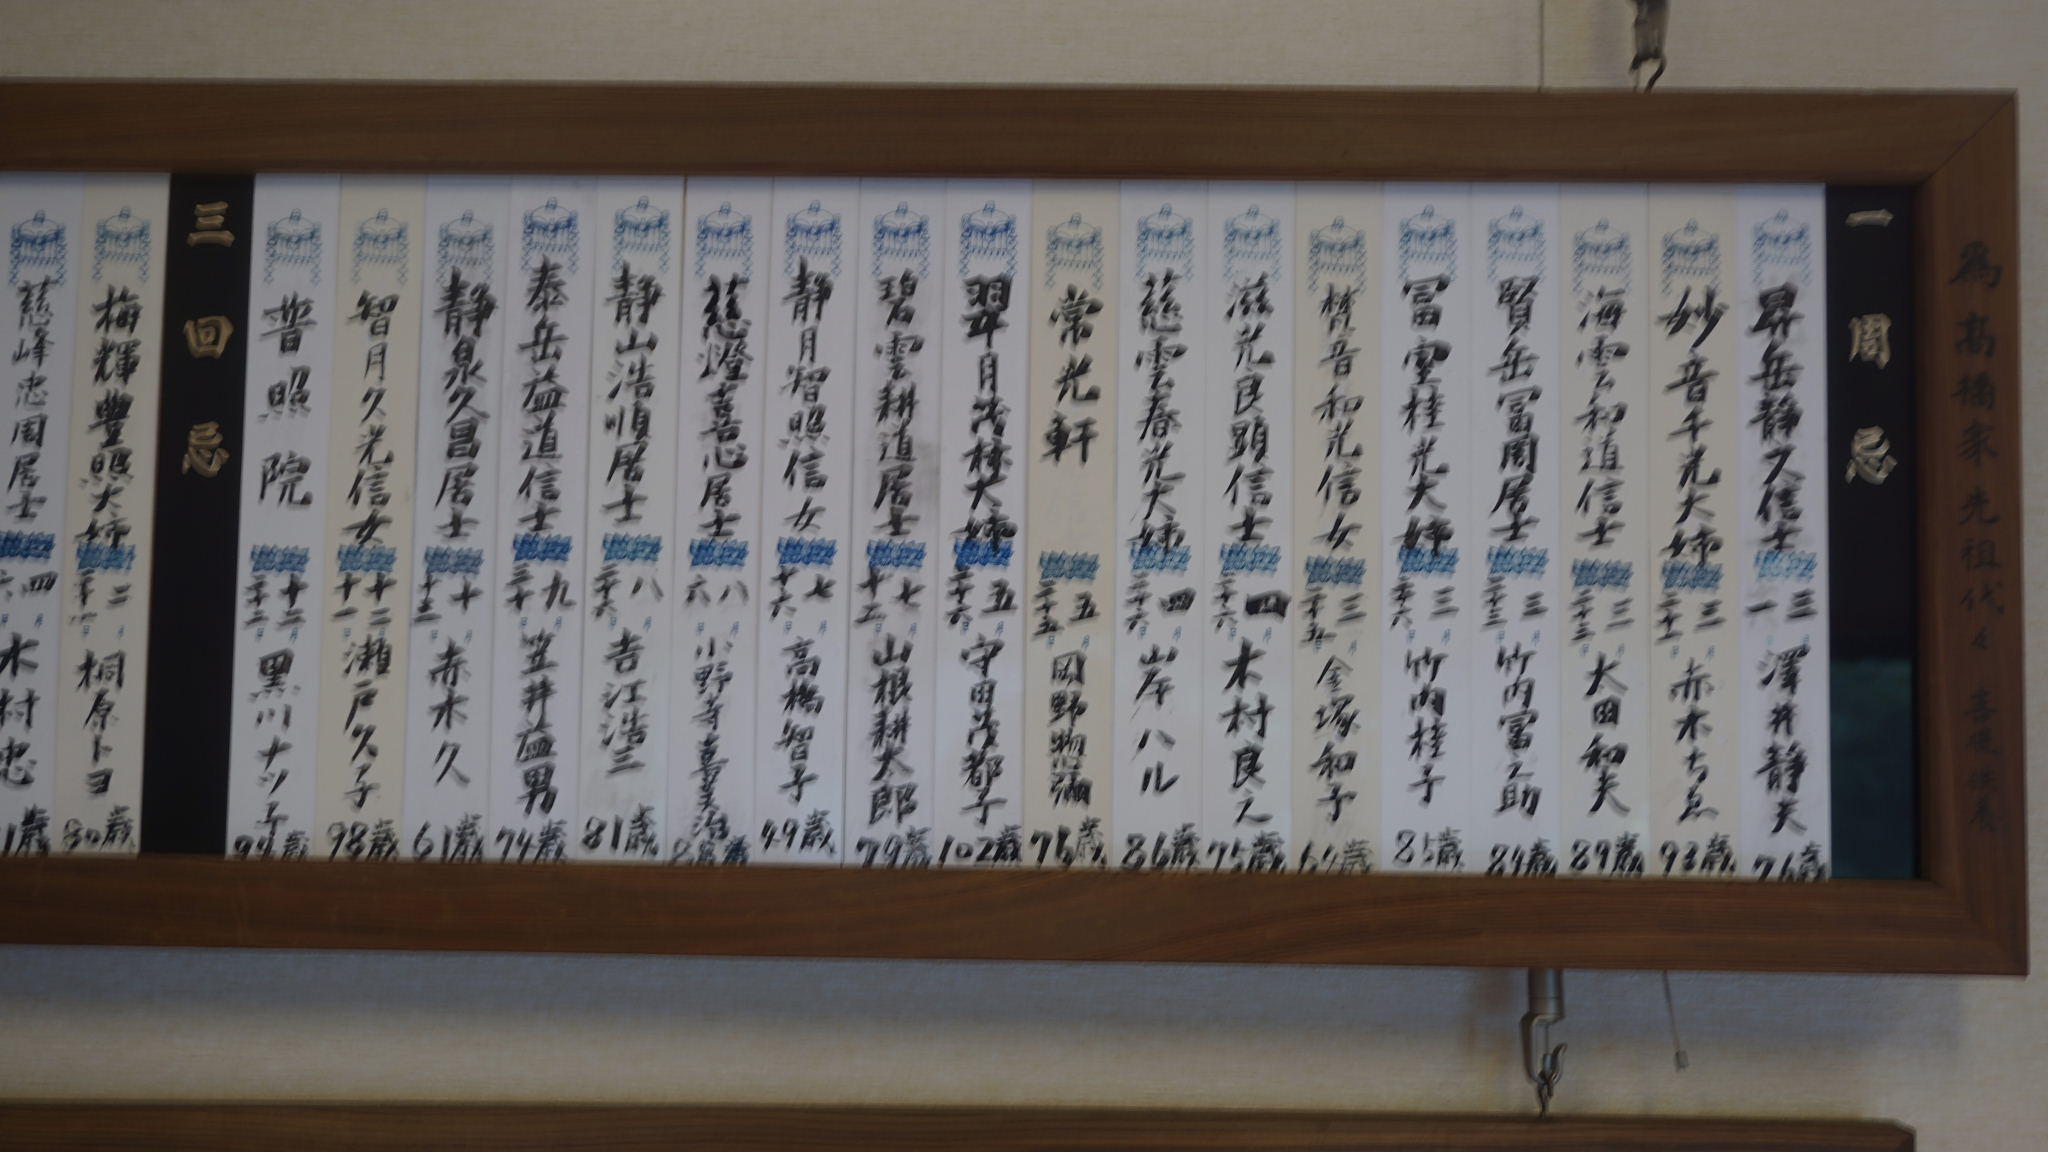 為高橋家先祖代々
一周忌
昇岳静久信士 三月一日 澤井静夫 76歳
妙音千光大姉 三月二十一日 赤木ちゑ 93歳
海雲和道信士 三月二十三日 太田和夫 89歳
賢岳冨周居士 三月二十三日 竹内冨之助 89歳
冨室桂光大姉 三月二十六日 竹内桂子 85歳
梵音和光信女 三月二十五日 金塚和子 64歳
滋光良顕信士 四月二十六日 木村良之 75歳
慈雲春光大姉 四月二十六日 岸ハル 86歳
常光軒 五月二十五日 岡野惣彌 75歳
翠月茂枝大姉 五月二十六日 守田茂都子 102歳
碧雲耕道居士 七月十五日 山根耕太郎 79歳
静月智照信女 七月十六日 高橋智子 49歳
慈燈喜心居士 八月六日 小野寺喜美治
静山浩順居士 八月二十六日 吉江浩三 81歳
泰岳益道信士 九月三十日 笠井益男 74歳
静泉久昌居士 十月十三日 赤木久 61歳
智月久光信女 十二月十一日 瀬戸久子 98歳
普照院 十二月二十二日 黒川ナツ子 94歳
三回忌
梅輝豊照大姉 二月 桐原トヨ 80歳
慈峰忠周居士 四月 木村忠